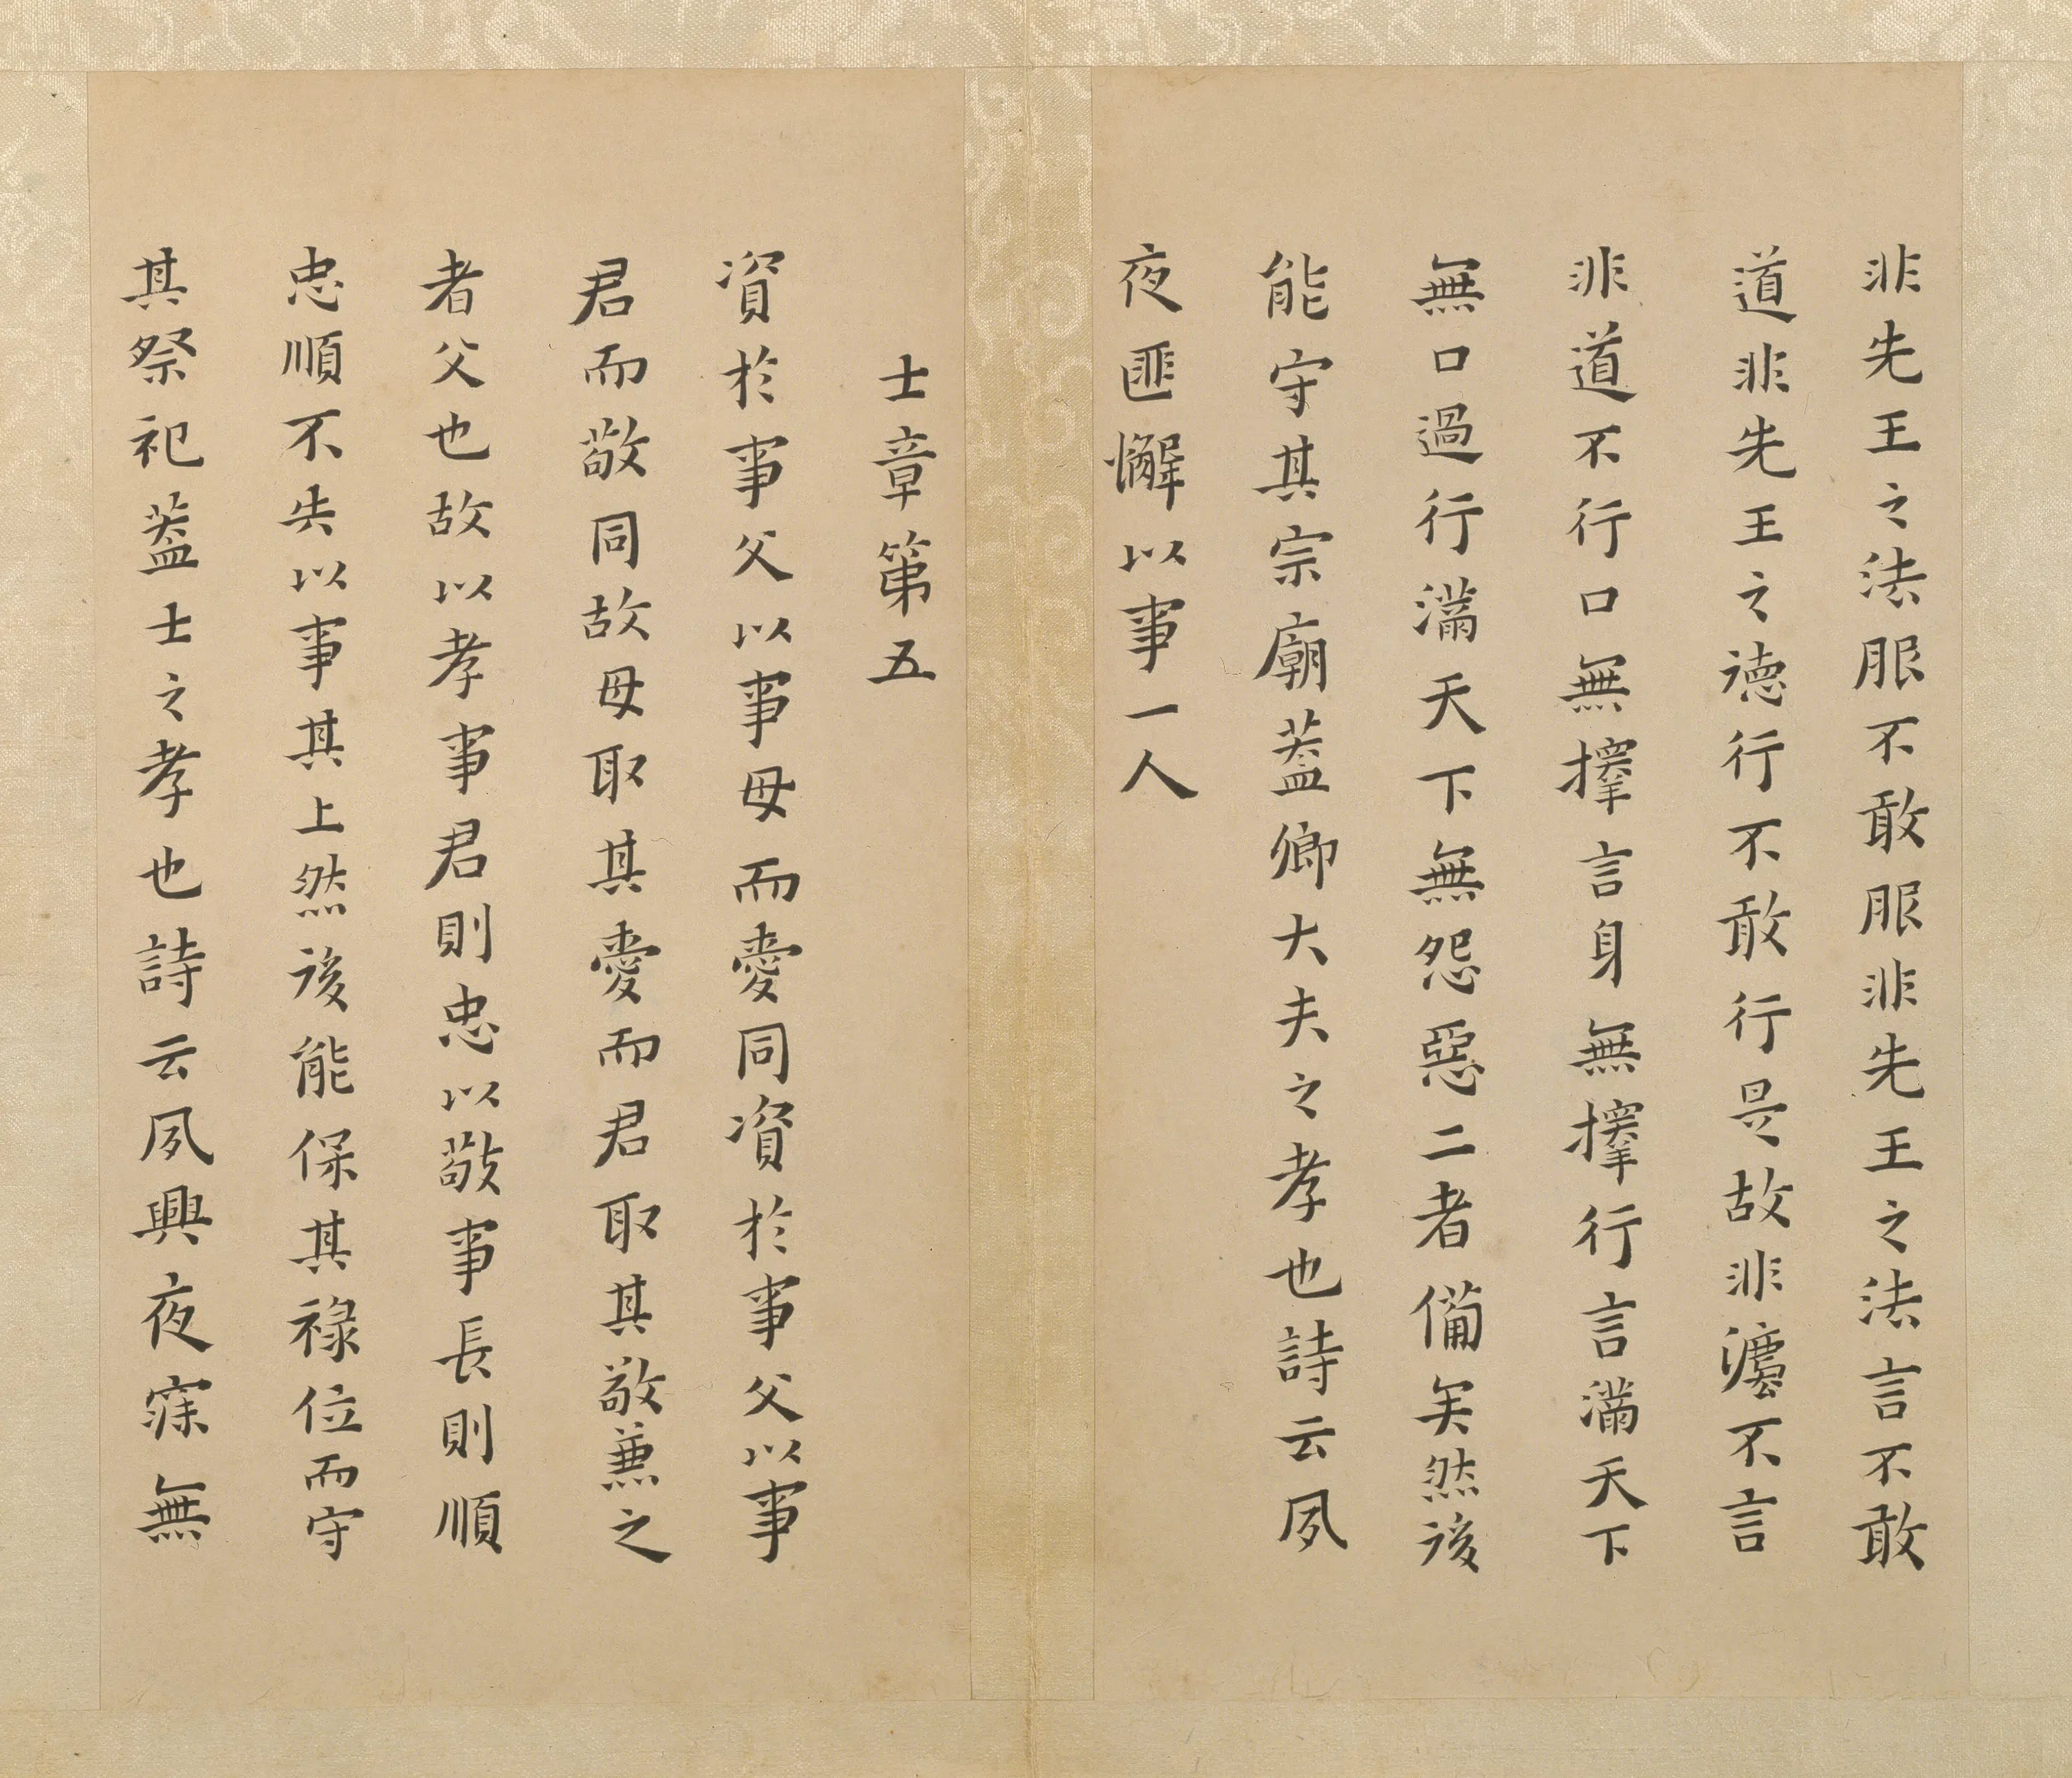 非先王之法服不敢服非先王之法言不敢
道非先王之德行不敢行是故非灋不言
非道不行口無擇言身無擇行言滿天下
無口過行滿天下無怨惡三者備矣然後
能守其宗廟蓋卿大夫之孝也詩云夙
夜匪懈以事一人
士章第五
資於事父以事母而愛同資於事父以事
君而敬同故母取其愛而君取其敬兼之
者父也故以孝事君則忠以敬事長則順
忠順不失以事其上然後能保其祿位而守
其祭祀蓋士之孝也詩云夙興夜寐無